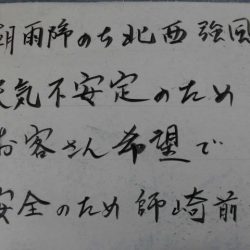 朝雨降のち北西強風
天気不安定のため
お客さん希望で
安全のため師崎前